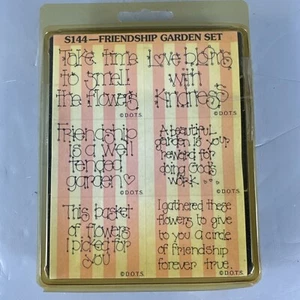 S144—FRIENDSHIP GARDEN SET
Take time
to smell
the flowers
©D.O.T.S.
Love blooms
with
Kindness
©D.O.T.S.
Friendship
is a well
tended
garden
©D.O.T.S.
A beautiful
garden is your
reward for
doing God's
work
©D.O.T.S.
This basket
of flowers
I picked for
you
©D.O.T.S.
I gathered these
flowers to give
to you a circle
of friendship
forever true
©D.O.T.S.